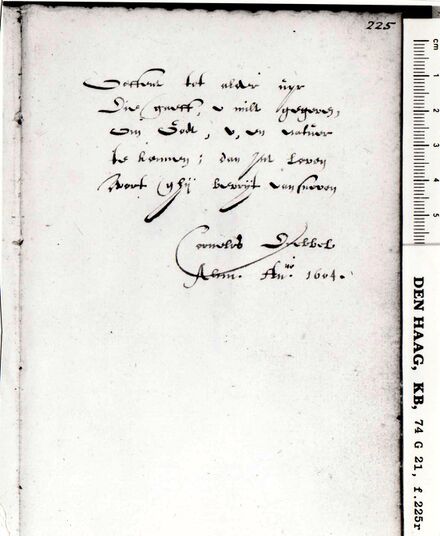 225
Oeffent tot alder uyr
Die gaeff, u milt gegeven,
Om Godt, u, en natuer
te kennen; dan int leven
Wort ghij bevrijt van sneven
Cornelis Drebbel
Alcm. Anᵒ. 1604.
cm
1
2
3
4
5
DEN HAAG, KB, 74 G 21, f.225r